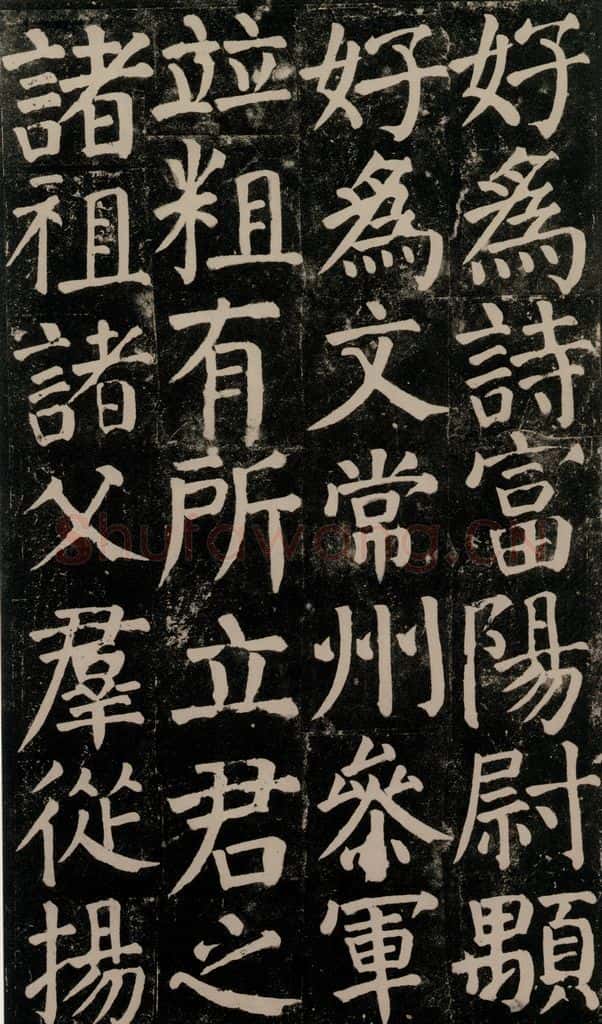 好爲詩富陽尉顒
好爲文常州叅軍
竝粗有所立君之
諸祖諸父羣從揚
Shufawang.CN